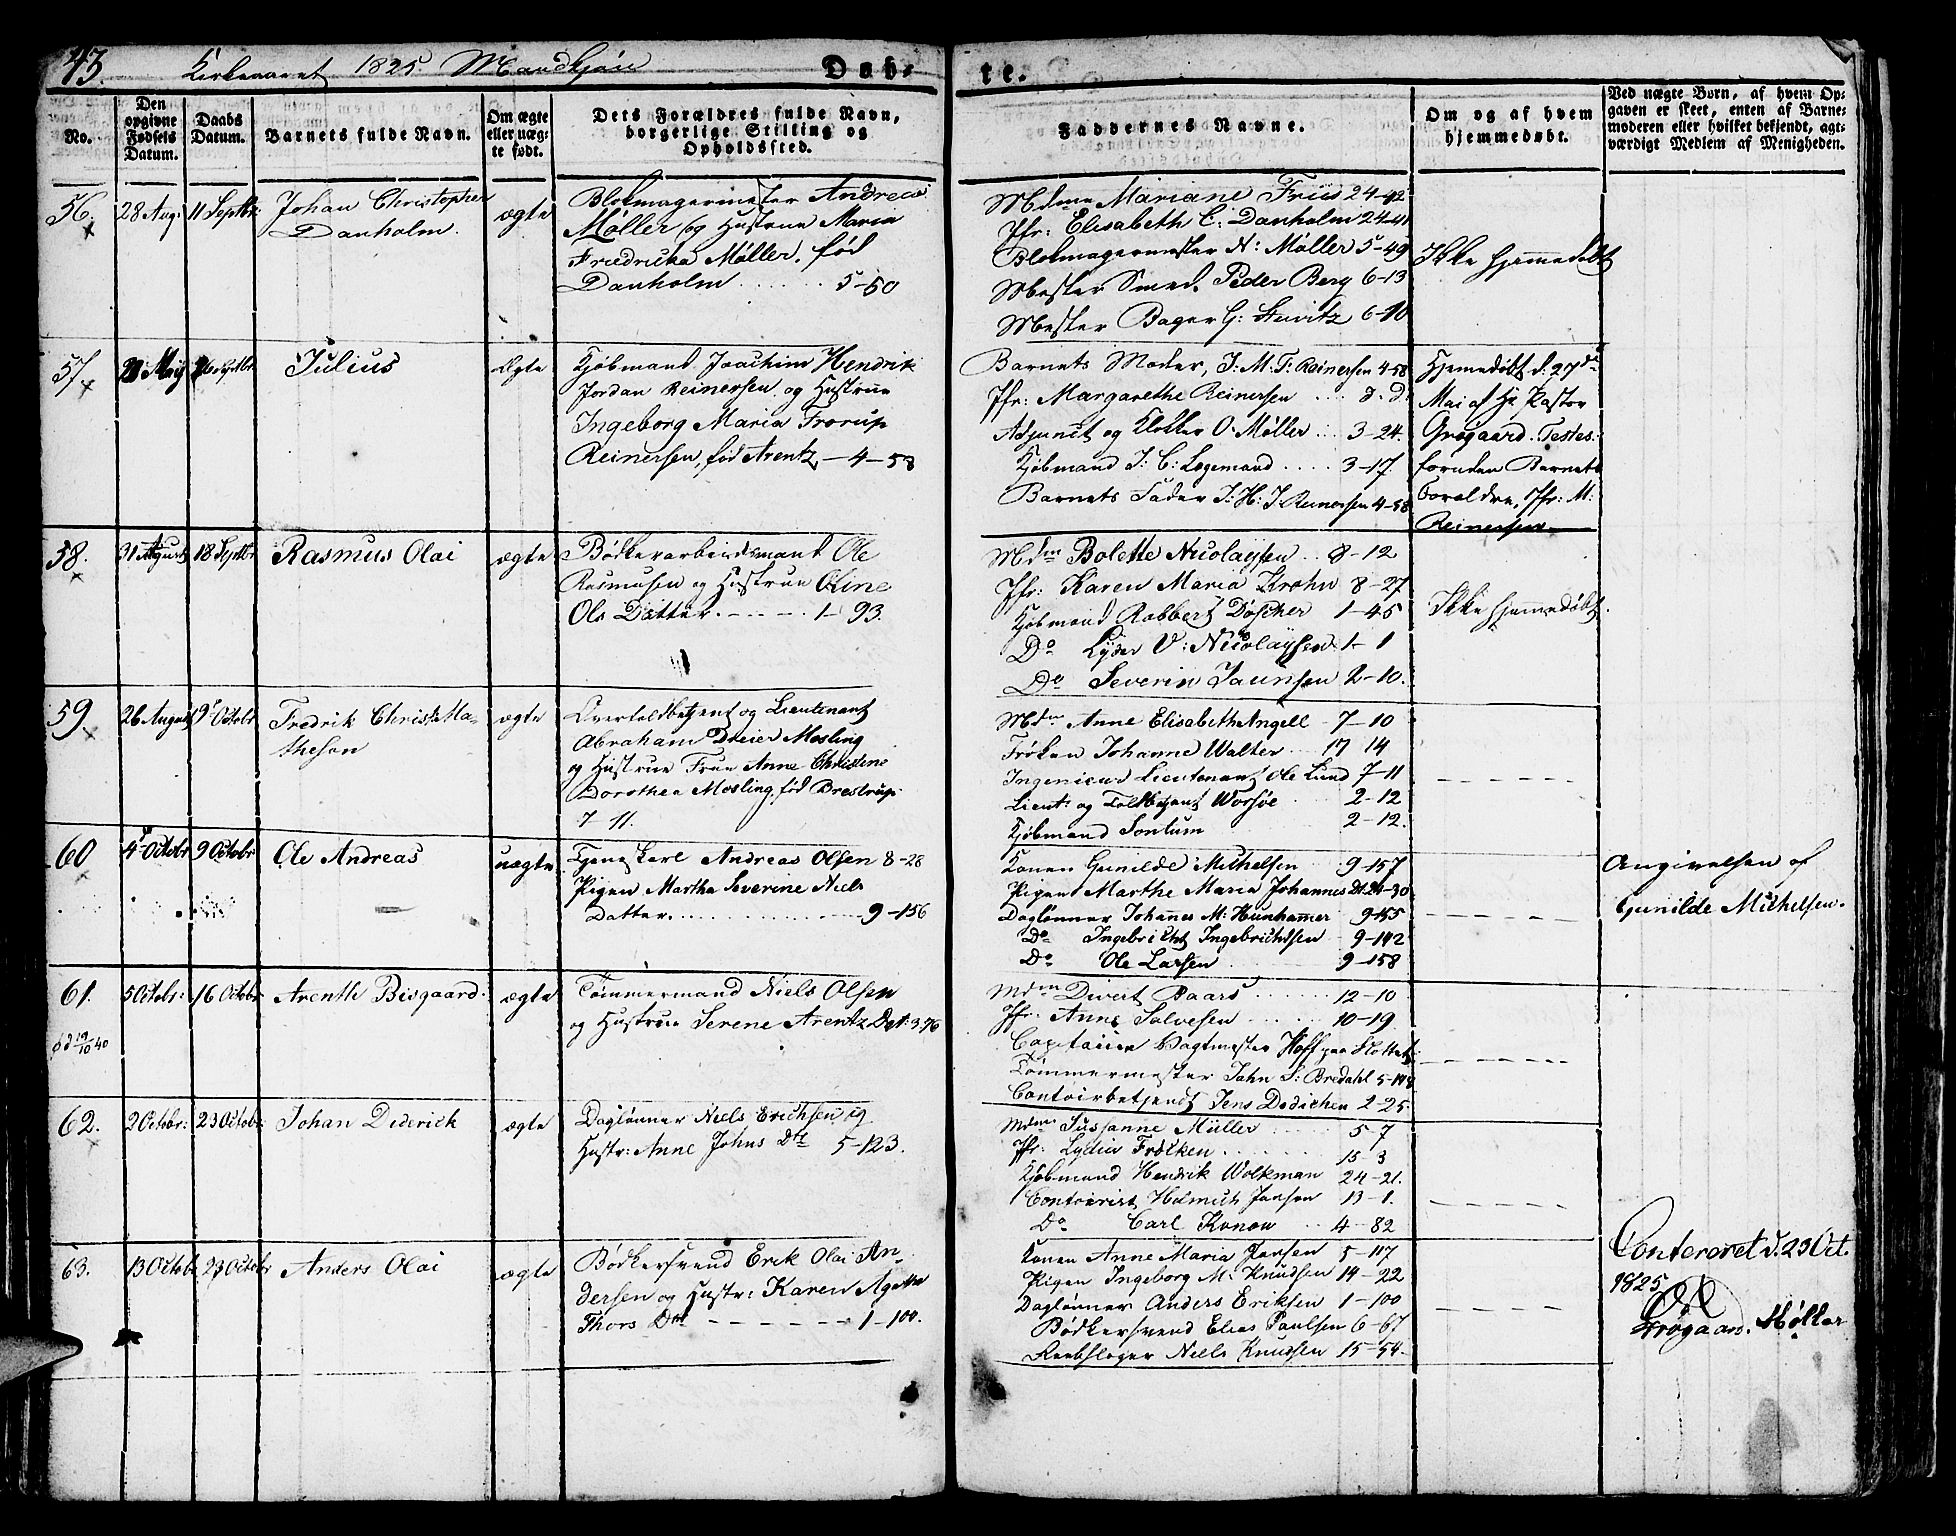 43.
Kirkeaaret 1825. Mandkjøn
Døb-
te.
No.
Den
opgivne
Fødsels
Datum.
Daabs
Datum.
Barnets fulde Navn.
Om ægte
eller uæg-
te født.
Dets Forældres fulde Navn,
borgerlige Stilling og
Opholdssted.
Faddernes Navne.
Om og af hvem
hjemmedøbt.
Ved uægte Børn, af hvem Op-
gaven er skeet, enten af Barne-
moderen eller hvilket bekjendt, agt-
værdigt Medlem af Menigheden.
56.
28 Aug:
11 Septbr:
Johan Christopher
Danholm.
ægte
Blokmagermester Andreas
Møller og Hustrue Maria
Friedricka Møller, fød
Danholm ...... 5-50
Mdme Mariane Friis 24-42
Jfr: Elisabeth C: Danholm 24-41
Blokmagermester N: Møller 5-49
Mester Smed. Peder Berg 6-13
Mester Bager G: 6-10
Ikke hjemmedøbt
57.
Maij
Septbr
Julius
Ægte
Kjøbmand Joachim Hendrik
Jordan Reinersen og Hustrue
Ingeborg Maria Trorup
Reinersen, fød Arentz, - 4-58
Barnets Moder, I. M. T. Reinersen 4-58
Jfr: Margarethe Reinersen .... d. d.
Adjunct og Klokker O. Møller ... 3-24.
Kjøbmand J: C: Legemand .... 3-17.
Barnets Fader J: H: J. Reinersen 4-58
Hjemedøbt d: 27de
Mai af Hr Pastor
Grøgaard. Testes.
foruden Barnets
Forældre, Jfr: M:
Reinersen
58.
31 August
18 Septbr
Rasmus Olai
ægte
Bødkerarbeidsmand Ole
Rasmusen og Hustrue Oline
Ols Datter. ----- 1-93.
Mdm Bolette Nicolaysen .. 8-12
Jfr: Karen Maria Krohn 8-27
Kjøbmand Robbert Döscher 1-45
Do Lyder V: Nicolaysen 1-1
Do Severin Jaunsen 2-10.
Ikke hjemmedøbt.
59.
26 August
9 Octobr
Fredrik Christ: Ma-
theson
ægte
Overtoldbetjent og Lieutenant
Abraham Dreier Mosling
og Hustrue Frue Anne Christine
Dorothea Mosling, fød Brestrup
7-11.
Mdm Anne Elisabeth Angell - 7-10
Frøken Johanne Walter ... 17 14
Ingenieur Lieutenant Ole Lund 7-11
Lieut: og Toldbetjent Worsøe 2-12
Kjøbmand Sontum 2-12.
60
4 Octobr
9 Octobr
Ole Andreas
uægte
Tjenestkarl Andreas Olsen 8-28
Pigen Martha Severine Niels
Datter. ------ 9-156
Konen Gunilde Michelsen ... 9-157
Pigen Marthe Maria Johannes Dt. 24-30
Daglønner Johannes M: Hunhamer 9-155
Do Ingebricht Ingebrichtsen 9-142
Do Ole Larsen ..... 9-158
Angivelsen af
Gunilde Michelsen.
61.
5 Octobr:
16 Octobr
Arenth Bisgaard.
ægte
Tømmermand Niels Olsen
og Hustrue Serene Arentz Dat: 3.76
Mdm Divert Baars ...... 12-10
Jfr: Anne Salvesen ...... 10-19
Capitaien Vagtmester Hoff paa Slottet
Tømmermester Jahn S: Bredahl 5-148
Contoirbetjendt Jens Dedichen 2-25.
62.
2 Octobr:
23 Octobr:
Johan Diderick
ægte
Daglønner Niels Erichsen, og
Hustr: Anne Johns Dtr 5-123.
Mdme Susanne Müller ..... 5-7
Jfr: Lydia Frølken ..... 15 3
Kjøbmand Hendrik Wolkman 24-21.
Contoirist Helmich Jansen 13-1.
Do Carl Konow .. 4-82
63.
13 Octob
23 Octobr
Anders Olai
ægte
Bødkersvend Erik Olai An-
dersen og Hustr: Karen Agathe
Thors Dat ------ 1-100.
Konen Anne Maria Hansen 5-117
Pigen Ingeborg M: Knudsen 14-22
Daglønner Anders Eriksen 1-100
Bødkersvend Elias Paulsen 6-67
Reebslager Niels Knudsen 15-54.
Conferéret d. 23 Oct.
1825
Grøgaard. Møller